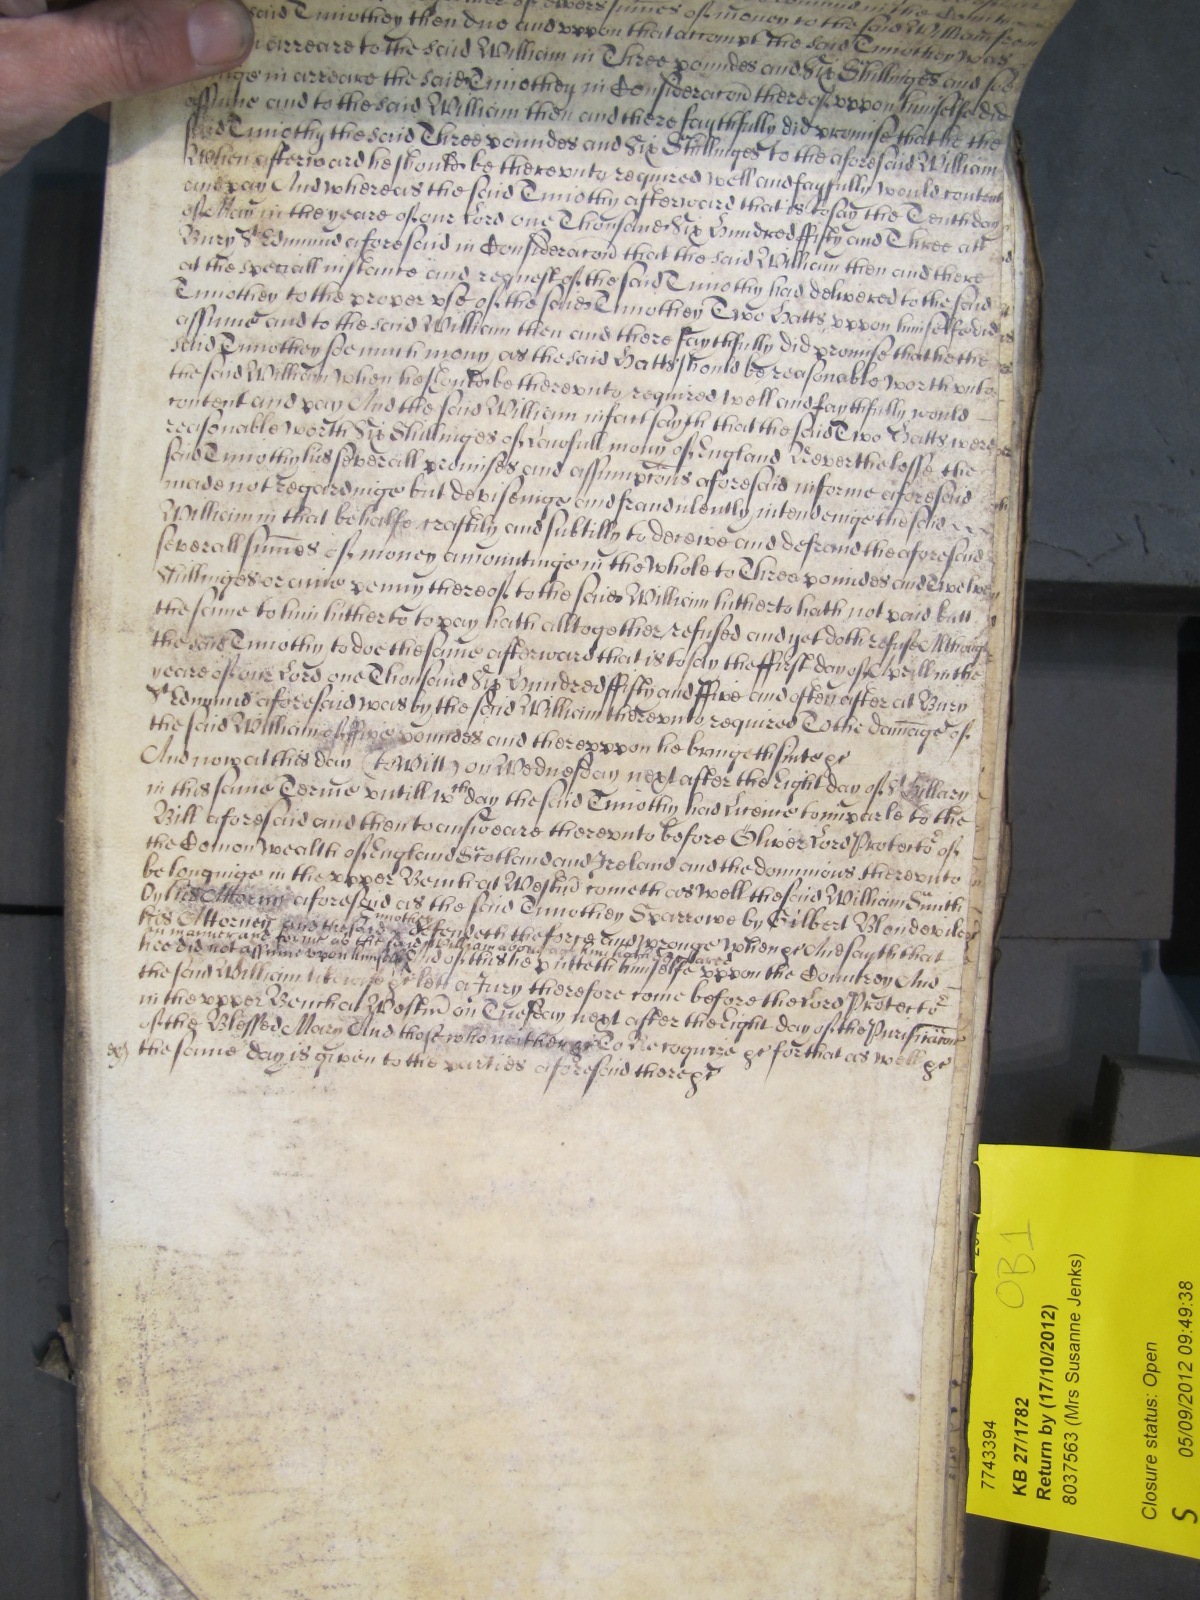 of divers summes of money to the said William from
said Timothey then due and vppon that accompt the said Timothey was
in arreare to the said William in Three poundes and Six Shillinges and soe
beinge in arreare the said Timothey in Consideracon thereof vppon himselfe did
assume and to the said William then and there faythfully did promise that he the
said Timothy the said Three poundes and Six Shillinges to the aforesaid William
When afterward he should be therevnto required well and fayfully would content
and pay And whereas the said Timothy afterward that is to say the Tenth day
of May in the yeare of our Lord one Thousand Six Hundred ffifty and Three att
Bury St Edmund aforesaid in Consideracon that the said William then and there
at the speciall instance and request of the said Timothy had delivered to the said
Timothey to the proper vse of the said Timothey Two Hatts vppon himselfe did
assume and to the said William then and there faythfully did promise that he the
said Timothey soe much mony as the said Hatts should be reasonable worth vnto
the said William when he should be therevnto required well and faythfully would
content and pay And the said William in fact sayth that the said Two Hatts were
reasonable worth Six Shillinges of Lawfull mony of England Neverthelesse the
said Timothy his severall promises and assumptions aforesaid in forme aforesaid
made not regardinge but devisinge and fraudulently intendeinge the said
William in that behalfe craftily and subtilly to deceive and defraud the aforesaid
severall summes of money amountinge in the whole to Three poundes and Twelve
Shillinges or anie penny thereof to the said William hitherto hath not paid butt
the same to him hitherto to pay hath alltogether refused and yet doth refuse Although
the said Timothy to doe the same afterward that is to say the ffirst day of Aprill in the
yeare of our Lord one Thousand Six Hundred ffifty and ffive and often after at Bury
St Edmund aforesaid was by the said William therevnto required To the damage of
the said William of ffive poundes and therevppon he bringeth suite &c
And now at this day (to Witt) on Wednesday next after the Eight day of St Hillary
in this same Terme vntill wch day the said Timothy had Licence to imparle to the
Bill aforesaid and then to answeare therevnto before Oliver Lord Protector of
the Comon Wealth of England Scotland and Ireland and the dominions therevnto
belonginge in the vpper Bench at Westm cometh as well the said William Smith
by his Attorny aforesaid as the said Timothey Sparrowe by Gilbert Blondevile
his Attorney And the said Timothey defendeth the force and wronge when &c And sayth that
hee did not assume vppon himselfe in manner and forme as the said William above against him hath declared And of this he putteth himselfe vppon the Countrey And
the said William likewise &c let a Jury therefore come before the Lord Protector
in the vpper Bench at Westm on Tuesday next after the Eight day of the Purificacon
of the Blessed Mary And those who neither &c To Recognize &c for that as well &c
the same day is given to the parties aforesaid there &c
7743394
OB1
KB 27/1782
Return by (17/10/2012)
8037563 (Mrs Susanne Jenks)
Closure status: Open
S 05/09/2012 09:49:38